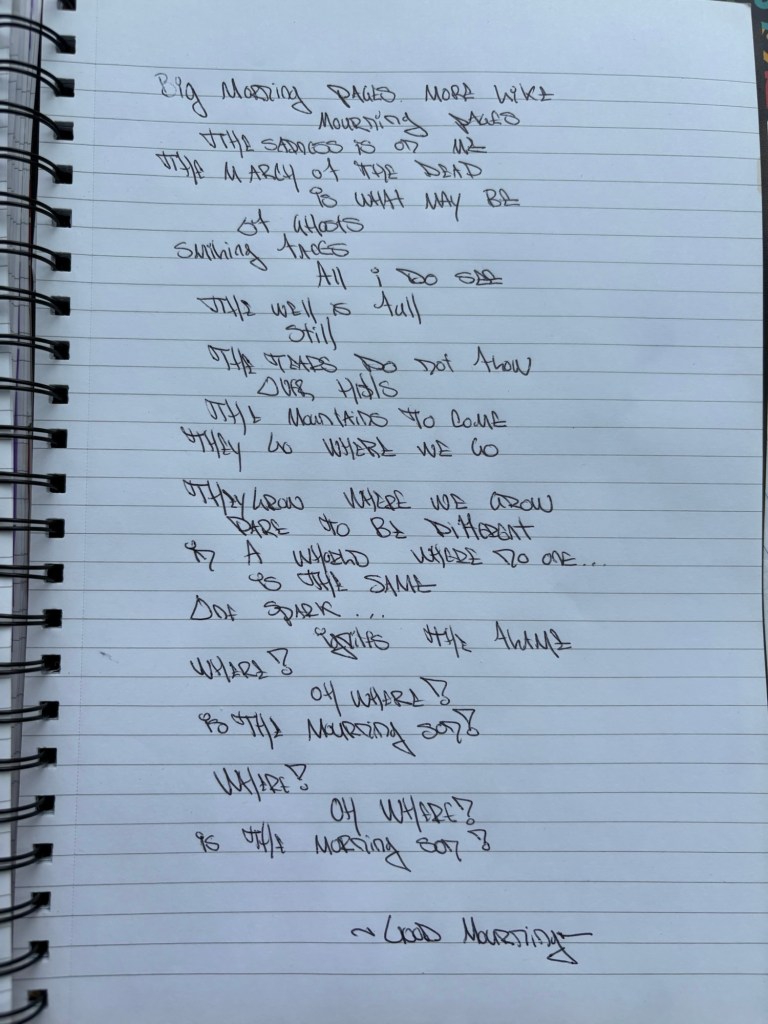 Big Morning PAGES MORE LIKE
MOURNING PAGES
THE SADNESS IS ON ME
THE MARCH OF THE DEAD
IS WHAT MAY BE
OF GHOSTS
Smiling FACES
All i DO SEE
THE WELL IS full
Still
THE TEARS DO NOT FLOW
OVER Hills
THE MOUNTAINS TO COME
THEY GO WHERE WE GO
THEY GROW WHERE WE GROW
DARE TO BE DIFFERENT
IN A WHORLD WHERE NO ONE...
IS THE SAME
ONE SPARK ...
IGNITES THE FLAME
WHERE?
OH WHERE?
IS THE MOURNING SON?
WHERE?
OH WHERE?
IS THE MORNING SON?
~ GOOD MOURNING~